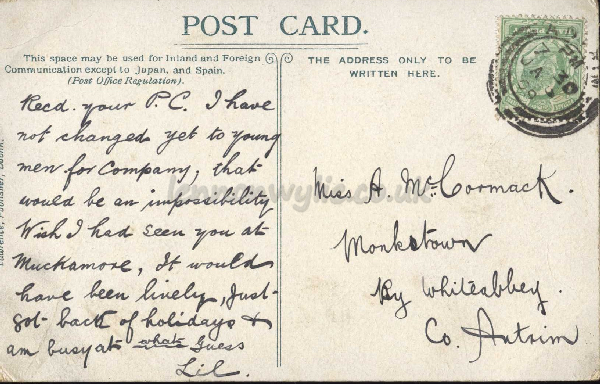 POST CARD.
This space may be used for Inland and Foreign
Communication except to Japan, and Spain.
(Post Office Regulation).
THE ADDRESS ONLY TO BE
WRITTEN HERE.
Recd. your P.C. I have
not changed yet to young
men for Company, that
would be an impossibility
Wish I had seen you at
Muckamore, It would
have been lively, Just
got back of holidays &
am busy at whats Guess
Lil.
Miss A. McCormack.
Monkstown
By Whiteabbey.
Co. Antrim
lennonwylie.co.uk